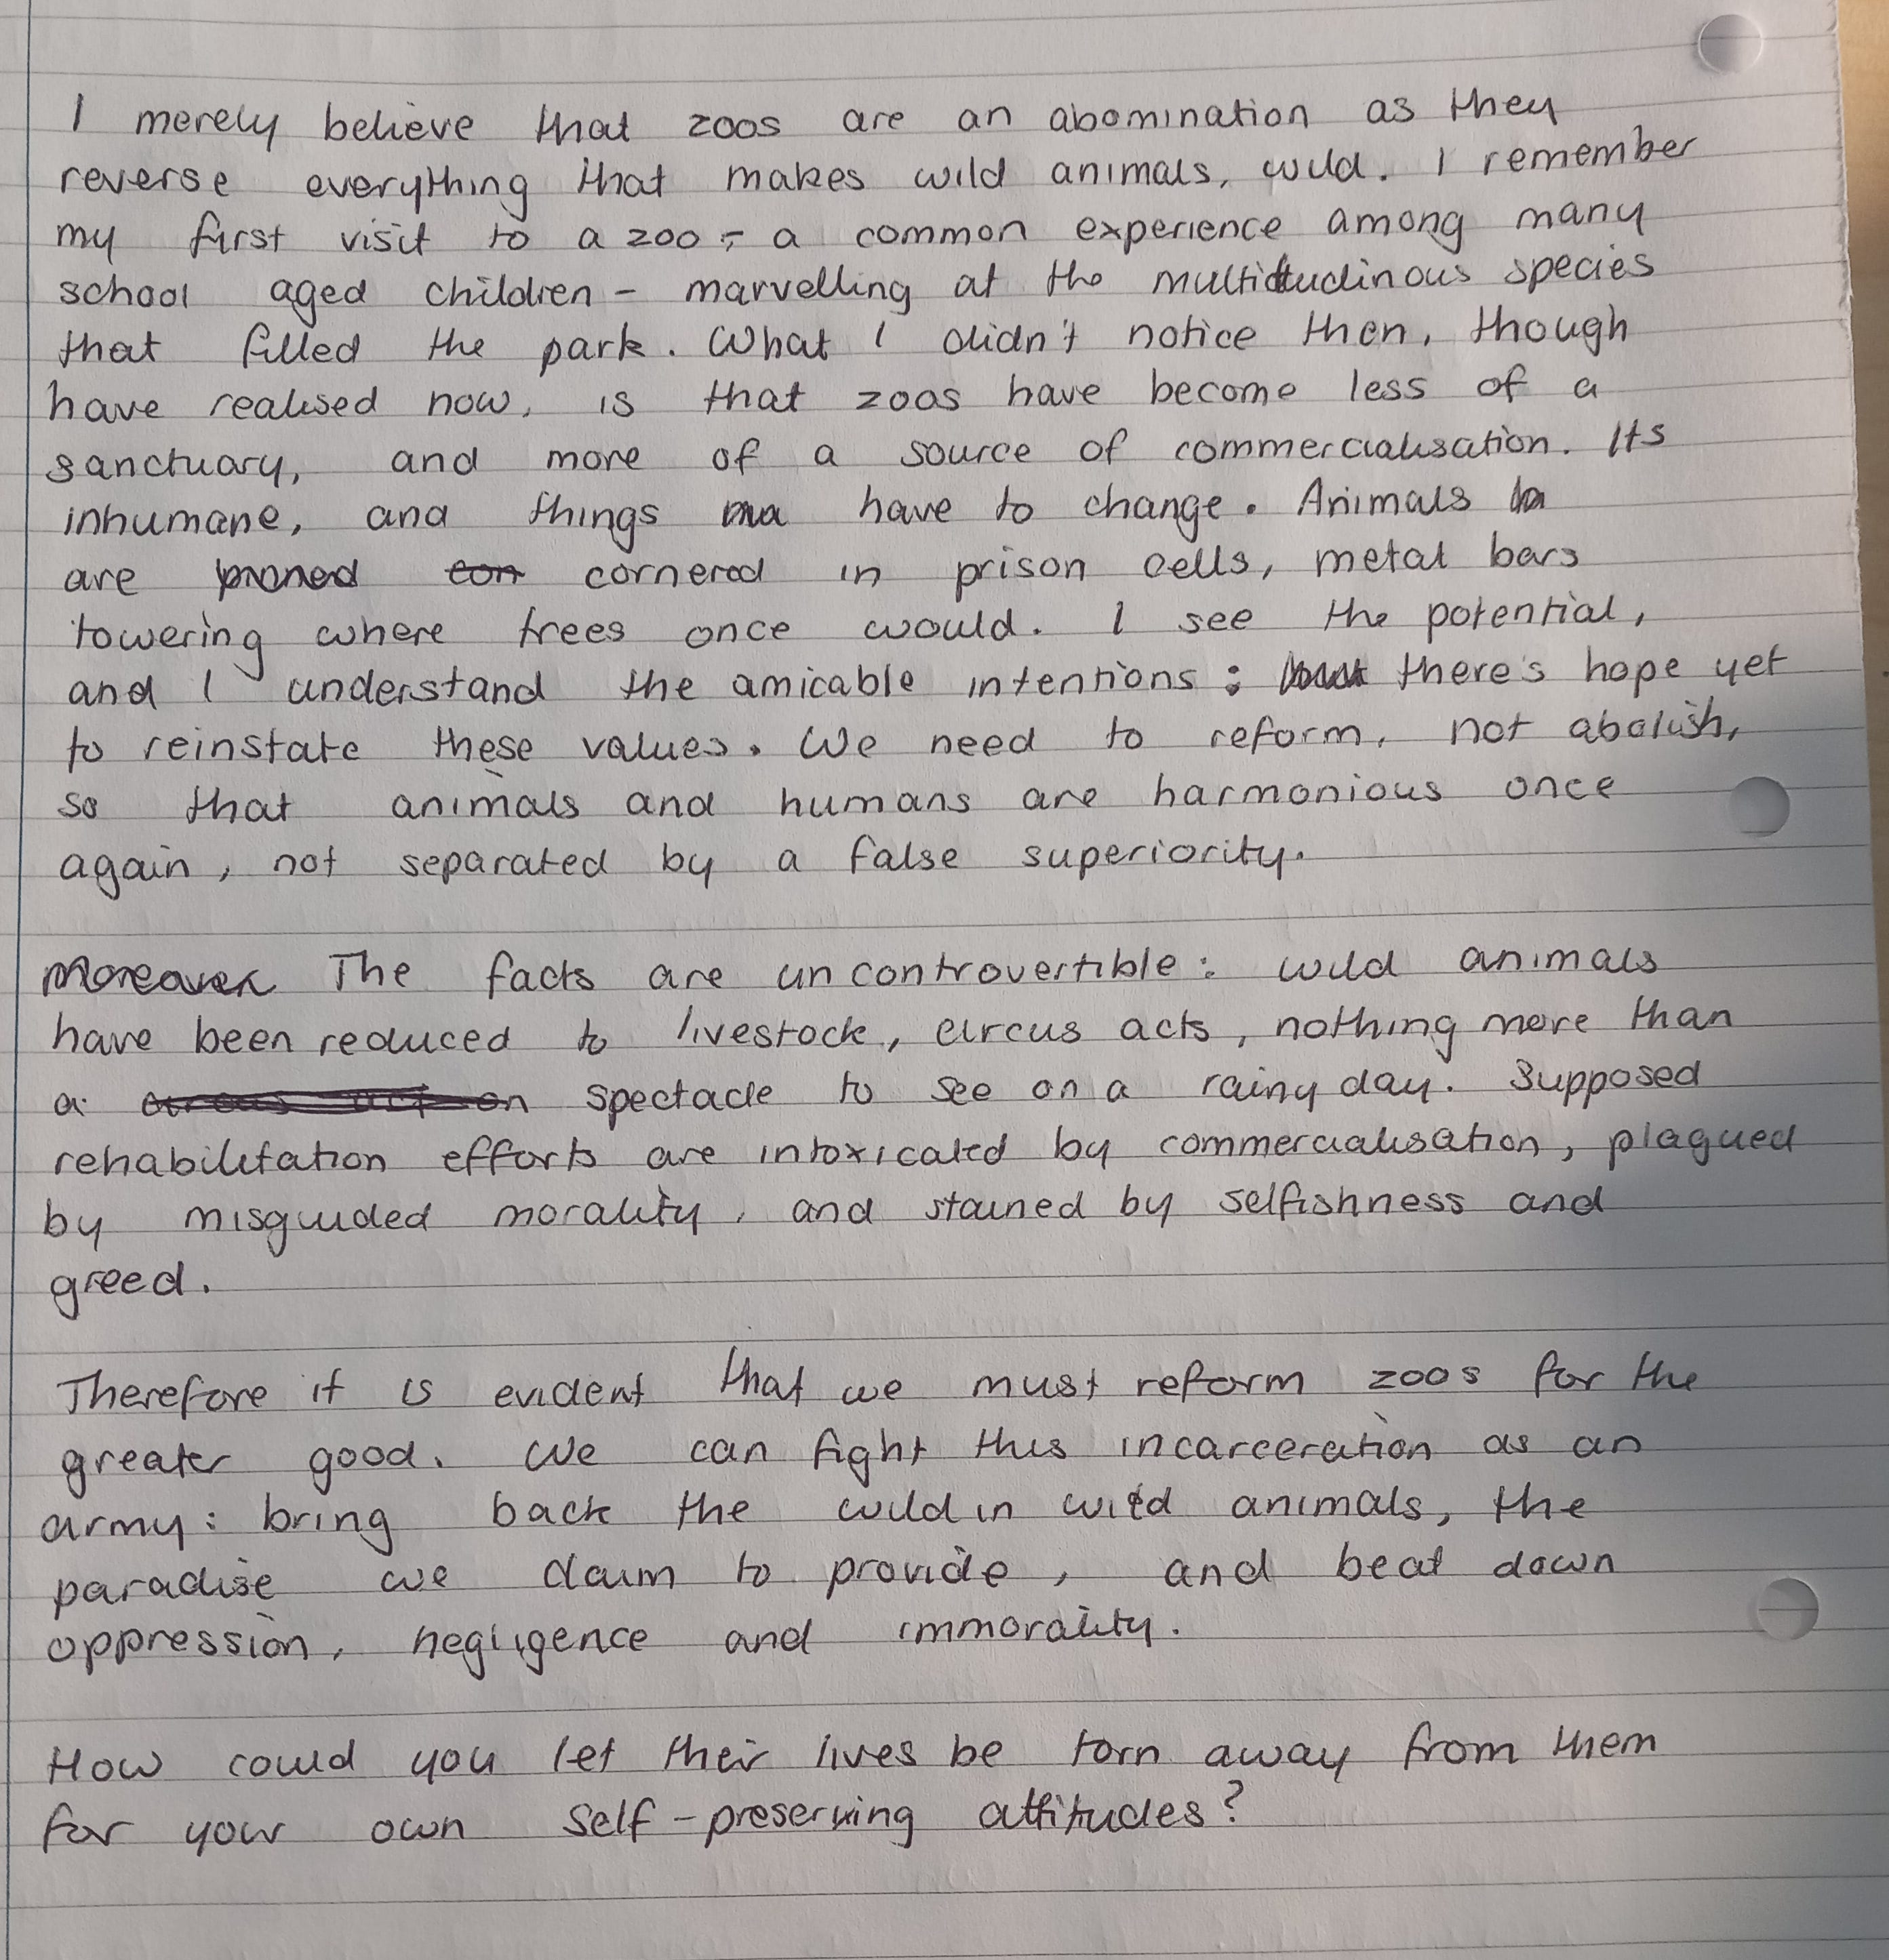 I merely believe that zoos are an abomination as they
reverse everything that makes wild animals, wild. I remember
my first visit to a zoo - a common experience among many
school aged children - marvelling at the multitudinous species
that filled the park. What I didn't notice then, though
have realised now, is that zoos have become less of a
sanctuary, and more of a source of commercialisation. Its
inhumane, and things have to change. Animals
are cornered in prison cells, metal bars
towering where trees once would. I see the potential,
and I understand the amicable intentions; there's hope yet
to reinstate these values. We need to reform, not abolish,
so that animals and humans are harmonious once
again, not separated by a false superiority.
Moreover The facts are uncontrovertible: wild animals
have been reduced to livestock, circus acts, nothing more than
a spectacle to see on a rainy day. Supposed
rehabilitation efforts are intoxicated by commercialisation, plagued
by misguided morality, and stained by selfishness and
greed.
Therefore it is evident that we must reform zoos for the
greater good. We can fight this incarceration as an
army: bring back the wild in wild animals, the
paradise we claim to provide, and beat down
oppression, negligence and immorality.
How could you let their lives be torn away from them
for your own self-preserving attitudes?